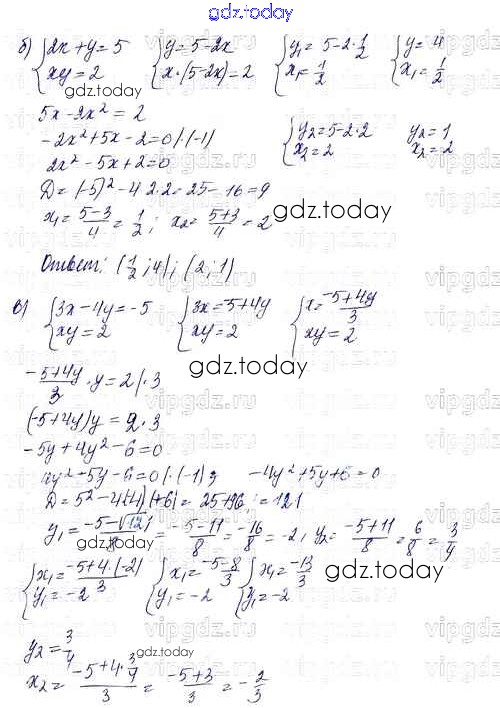 gdz.today
б) {2x+y=5 {y=5-2x {y₁=5-2·1/2 {y=4
{xy=2 {x·(5-2x)=2 {x₁=1/2 {x₁=1/2
gdz.today
5x-2x²=2
-2x²+5x-2=0 /·(-1) {y₂=5-2·2 y₂=1
2x²-5x+2=0 {x₂=2 x₂=2
D=(-5)²-4·2·2=25-16=9
x₁=(5-3)/4=1/2; x₂=(5+3)/4=2
gdz.today
Ответ: (1/2;4); (2;1)
в) {3x-4y=-5 {3x=-5+4y {x=(-5+4y)/3
{xy=2 {xy=2 {xy=2
gdz.today
(-5+4y)/3·y=2 /·3
(-5+4y)y=2·3
-5y+4y²-6=0
4y²-5y-6=0 /·(-1) -4y²+5y+6=0
D=5²-4·(-4)·(+6)=25+96=121
y₁=(-5-√121)/8=(-5-11)/8=-16/8=-2, y₂=(-5+11)/8=6/8=3/4
{x₁=(-5+4·(-2))/3 {x₁=(-5-8)/3 {x₁=-13/3
{y₁=-2 {y₁=-2 {y₁=-2
gdz.today
y₂=3/4
gdz.today
x₂=(-5+4·3/4)/3=(-5+3)/3=-2/3
vipgdz.ru